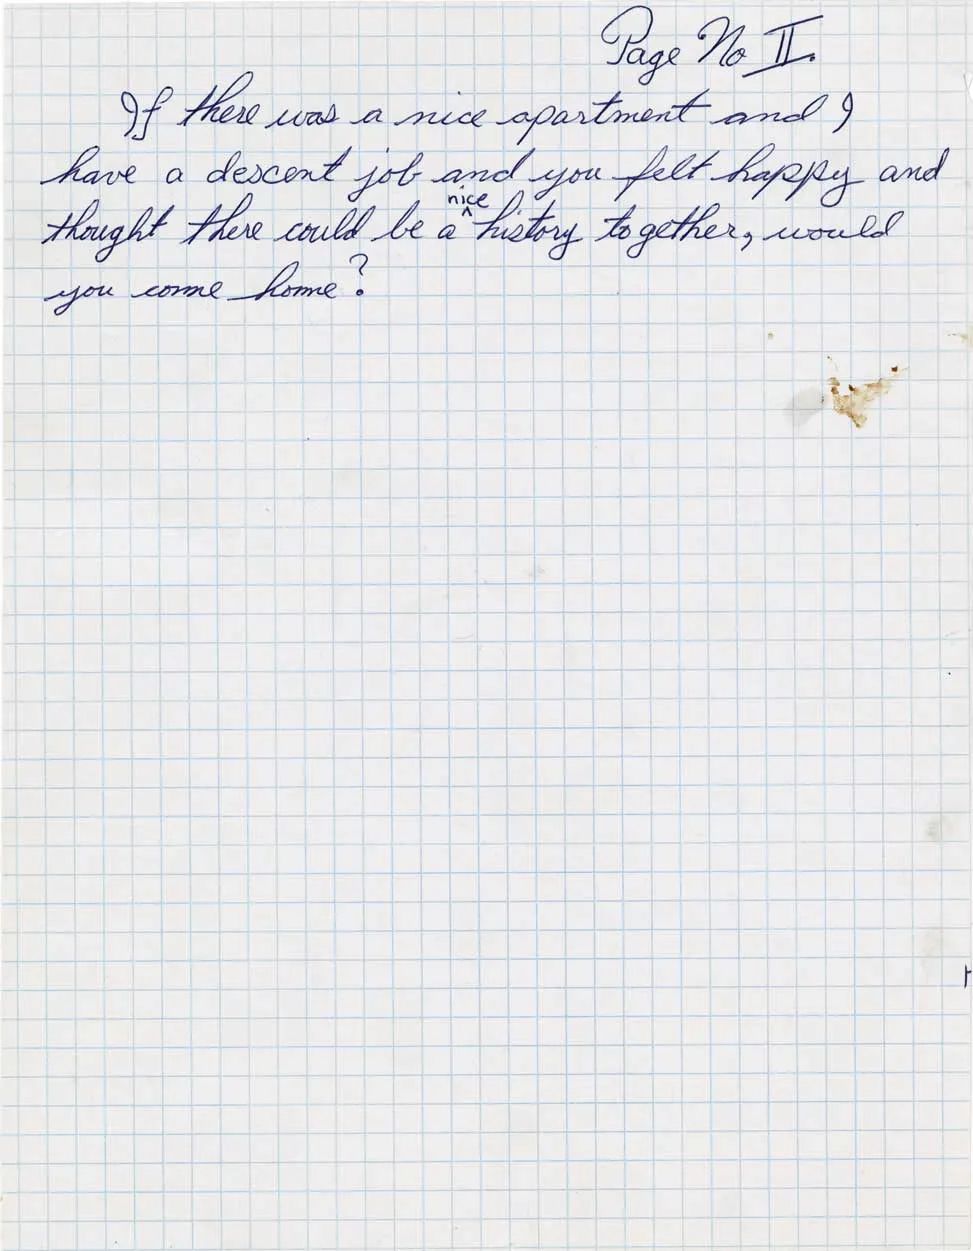 Page No II.
If there was a nice apartment and I
have a descent job and you felt happy and
thought there could be a ^nice history together, would
you come home?